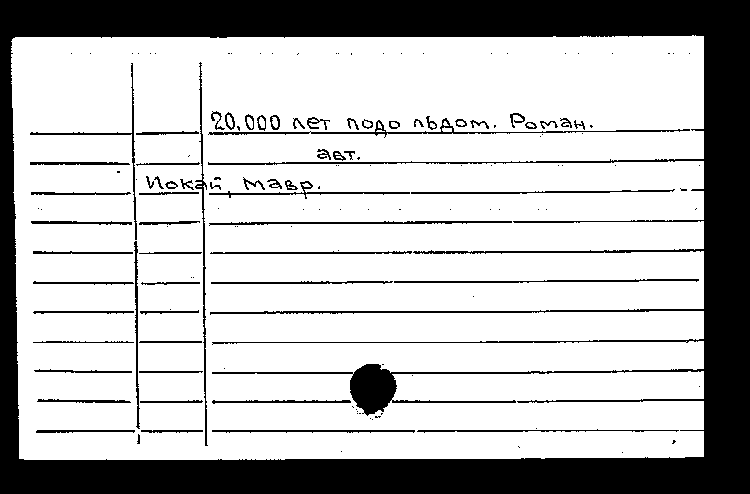 20,000 лет подо льдом. Роман.
авт.
Иокай, Мавр.